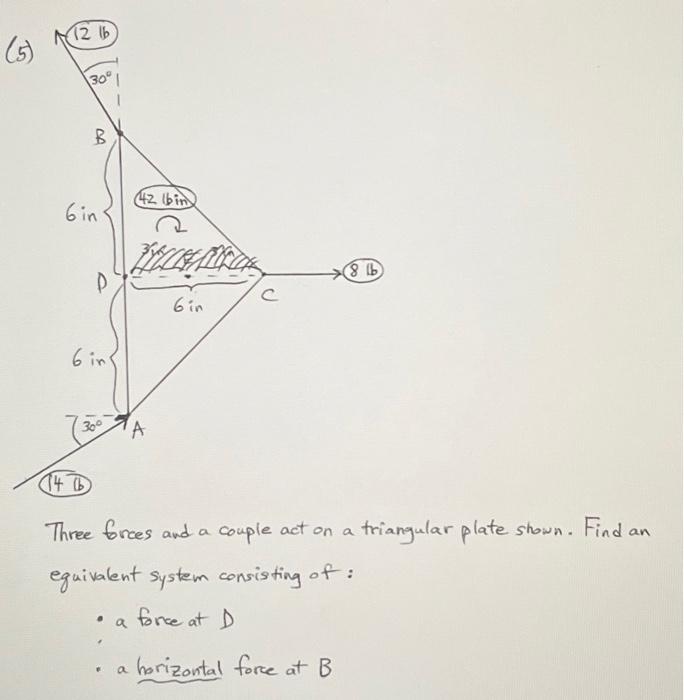 (5)
12 lb
30°
B
6 in
42 lb in
D
6 in
C
8 lb
6 in
30°
A
14 lb
Three forces and a couple act on a triangular plate shown. Find an
equivalent system consisting of :
• a force at D
• a horizontal force at B